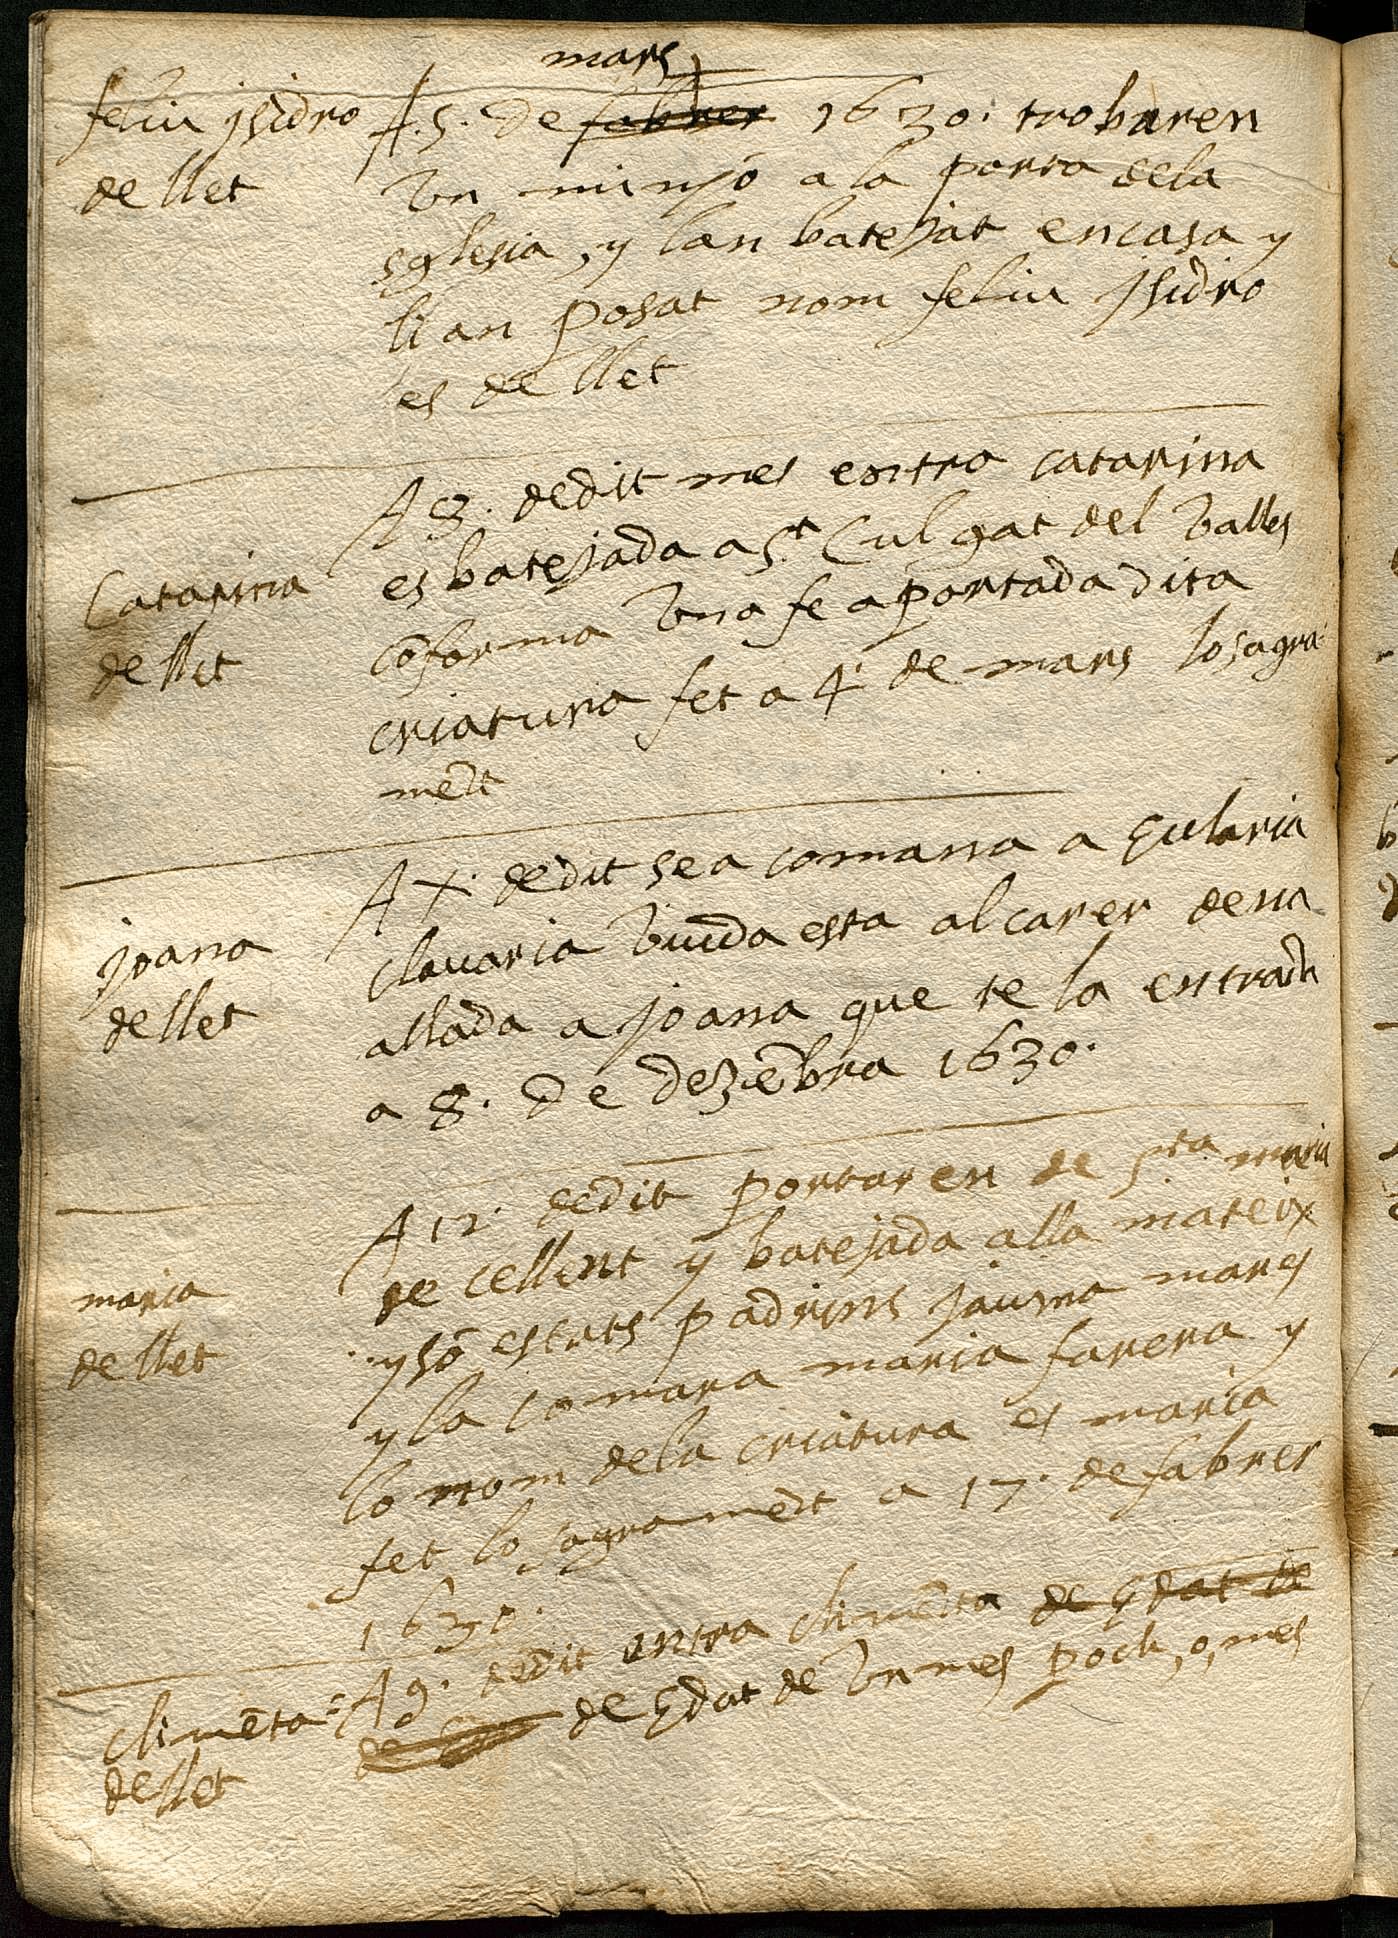 mars
feliu jsidro
de llet
A 5. de fabrer 1630. trobaren
vn minyó a la porta dela
sglesia, y lan batejat en casa y
li an posat nom feliu jsidro
es de llet
Catarina
de llet
A 8. de dit mes entra catarina
es batejada a St Culgat del Valles
cōforma vna fe aportada dita
criatura fet a 4. de mars lo sagra-
mēt
joana
de llet
A X. de dit se a comana a Eularia
clauaria viuda esta al carer dena
allada a joana que te la entrada
a 8. de dezēbra 1630.
maria
de llet
A 12. de dit portaren de Sta maria
de cellent y batejada alla mateix
y sō estats padrins jauma mares
y la comara maria farera y
lo nom dela criatura es maria
fet lo sagramēt a 17. de fabrer
1630.
climēta
de llet
A 9. de dit entra climēta de Edat de
de de Edat de vn mes poch, o, mes